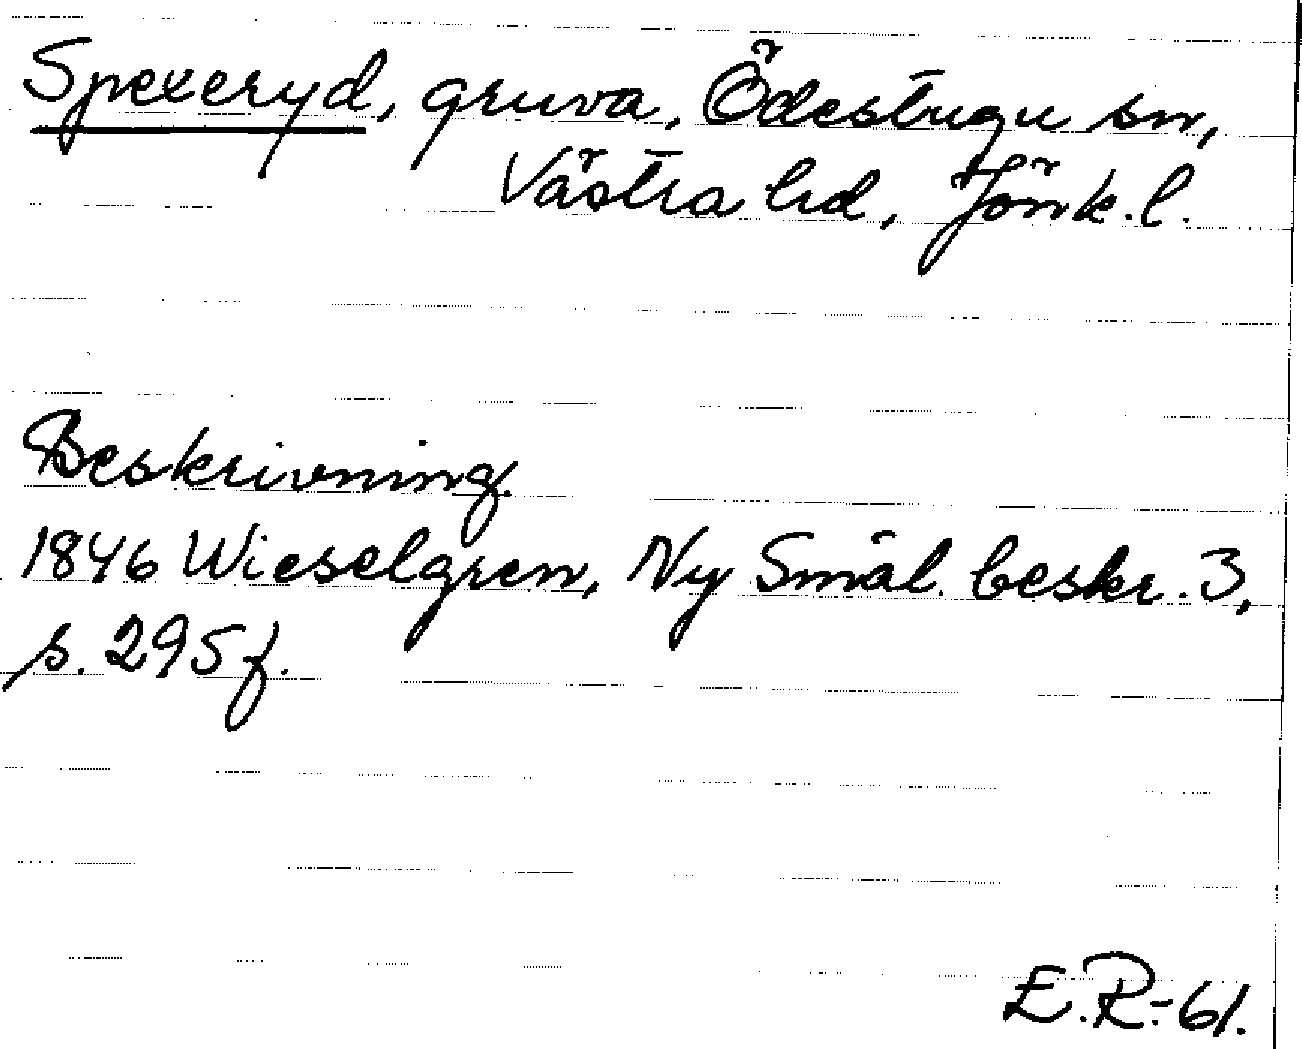 Spexeryd, gruva, Ödestugu sn,
Västra hd, Jönk. l.
Beskrivning.
1846 Wieselgren, Ny Smål. beskr. 3,
s. 295 f.
E.R.-61.